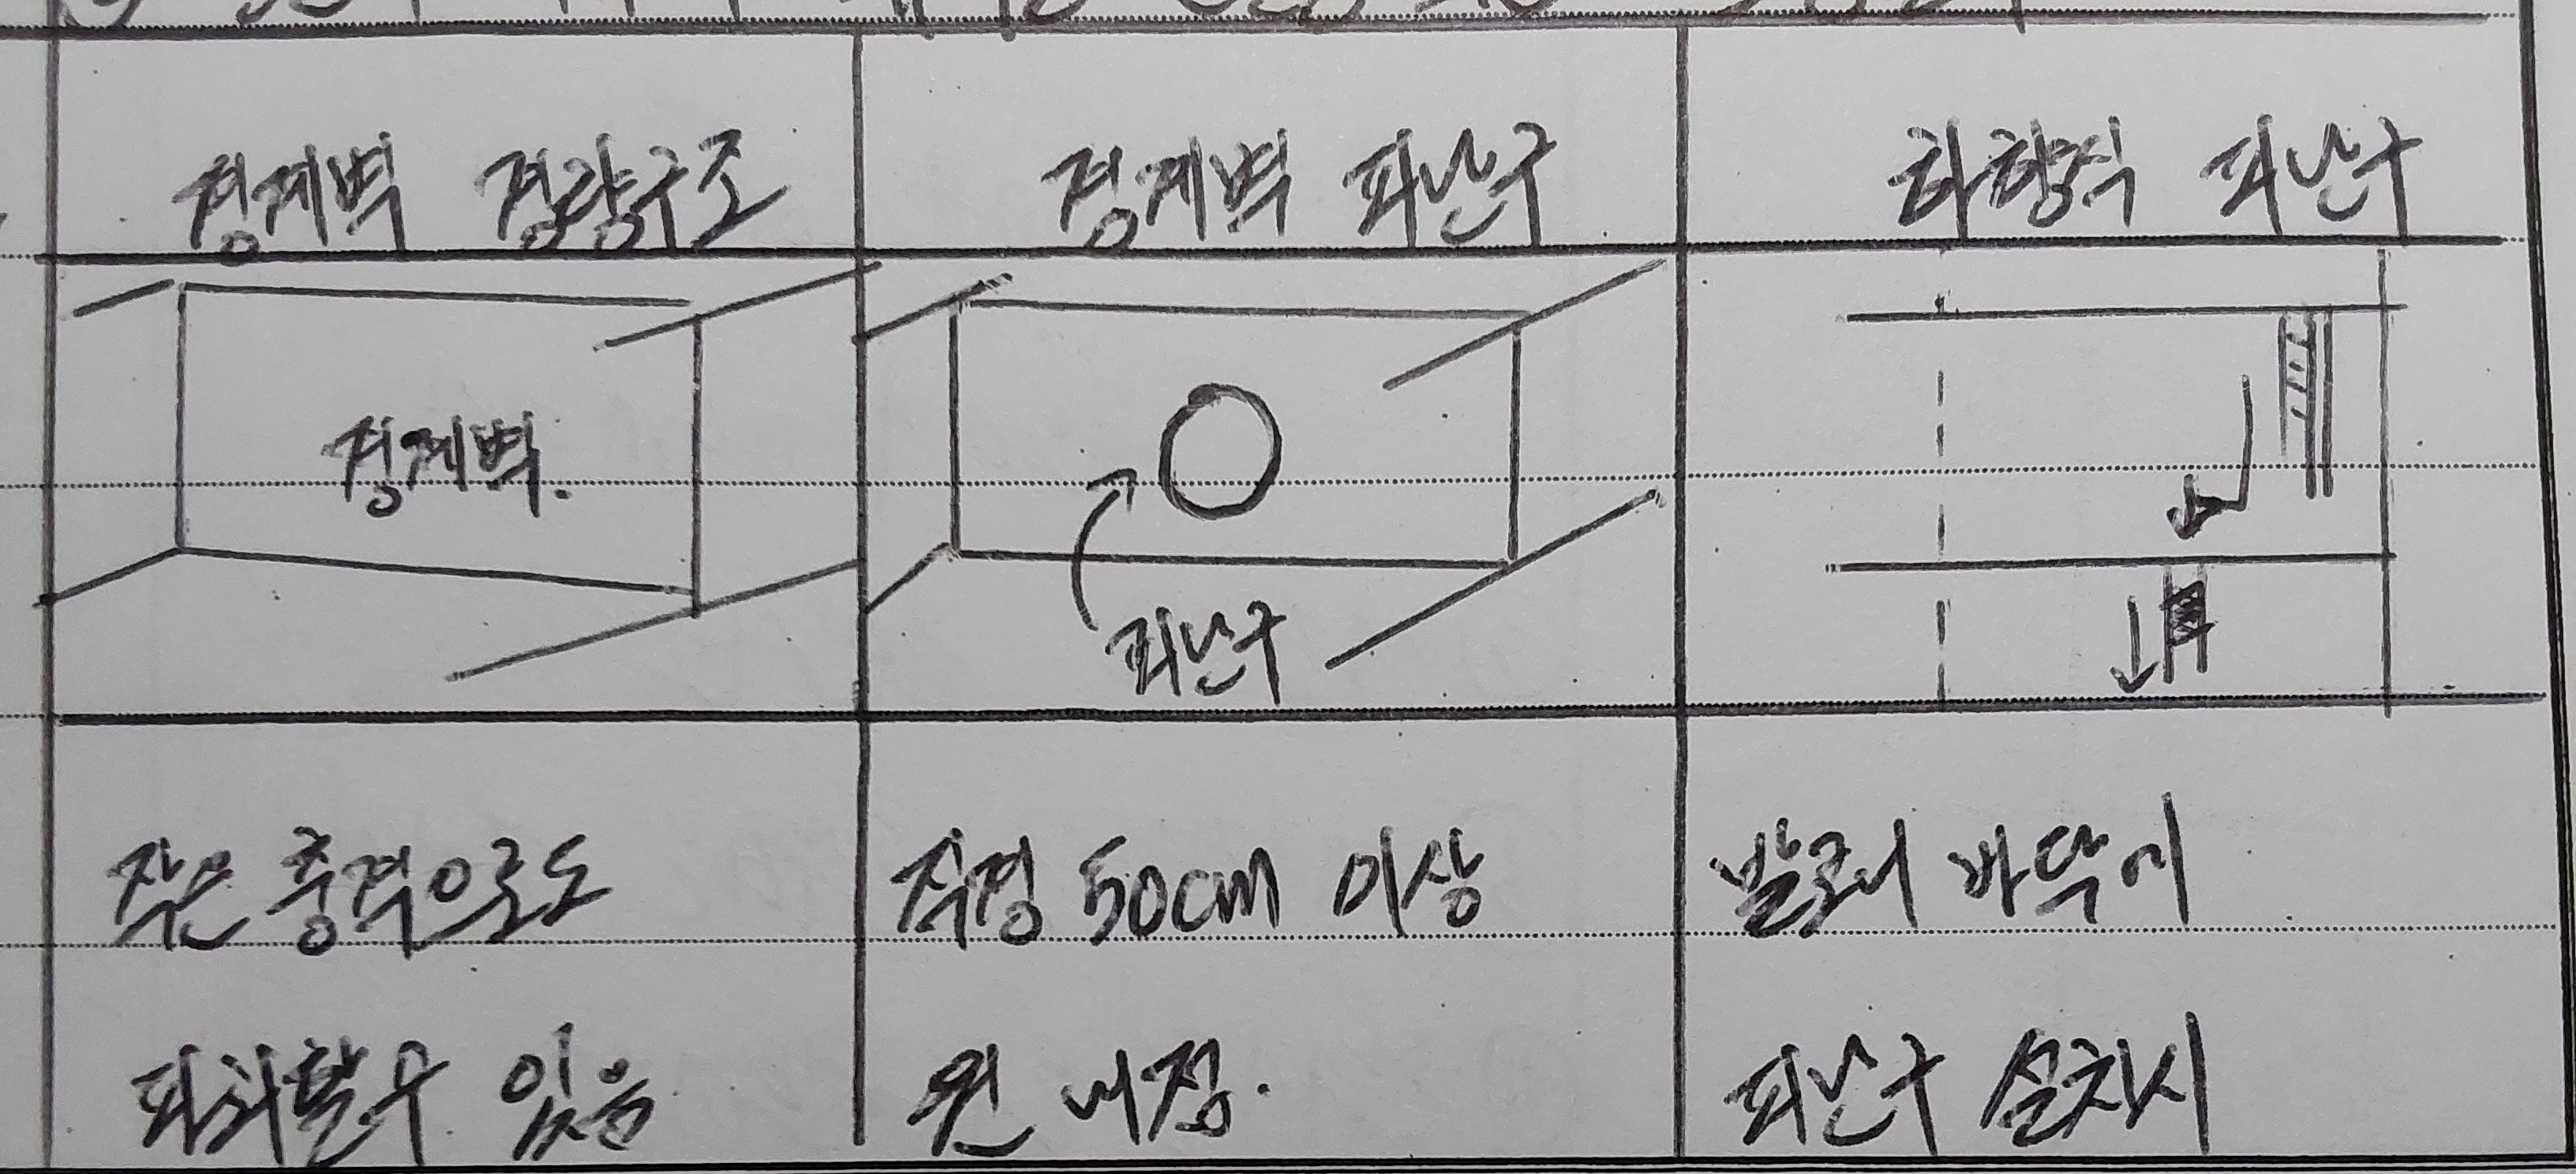 경계벽 경량구조
경계벽 피난구
하향식 피난구
경계벽.
피난구
작은 충격으로도
파괴할수 있음
직경 50cm 이상
원 내접.
발코니 바닥에
피난구 설치시